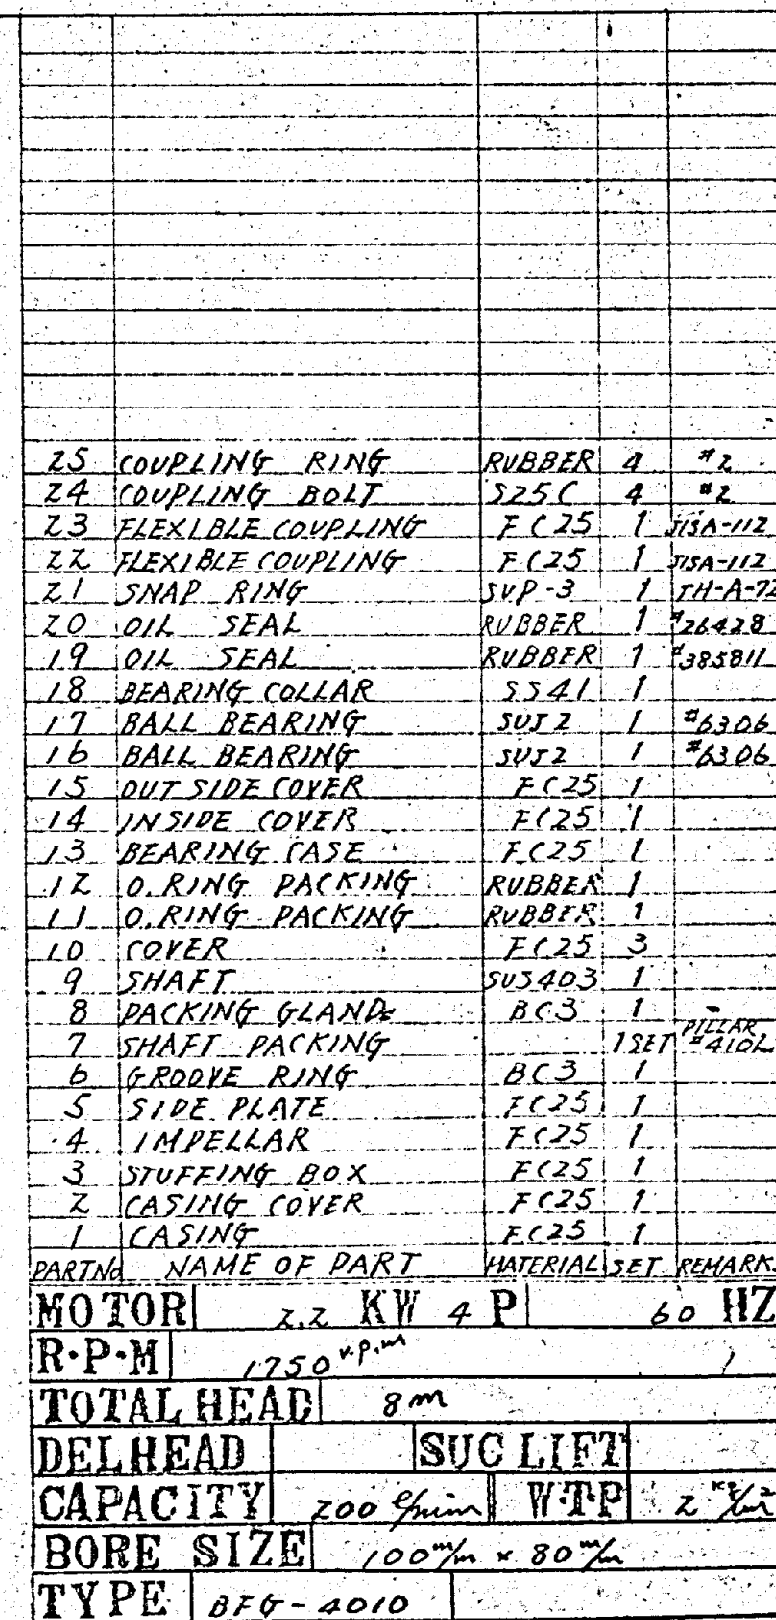 25 COUPLING RING RUBBER 4 #2
24 COUPLING BOLT S25C 4 #2
23 FLEXIBLE COUPLING FC25 1 JISA-112
22 FLEXIBLE COUPLING FC25 1 JISA-112
21 SNAP RING SUP-3 1 TH-A-72
20 OIL SEAL RUBBER 1 #26428
19 OIL SEAL RUBBER 1 #385811
18 BEARING COLLAR SS41 1
17 BALL BEARING SUJ2 1 #6306
16 BALL BEARING SUJ2 1 #6306
15 OUT SIDE COVER FC25 1
14 IN SIDE COVER FC25 1
13 BEARING CASE FC25 1
12 O.RING PACKING RUBBER 1
11 O.RING PACKING RUBBER 1
10 COVER FC25 3
9 SHAFT SUS403 1
8 PACKING GLAND BC3 1
7 SHAFT PACKING 1SET PILLAR #410L
6 GROOVE RING BC3 1
5 SIDE PLATE FC25 1
4 IMPELLAR FC25 1
3 STUFFING BOX FC25 1
2 CASING COVER FC25 1
1 CASING FC25 1
PARTNO NAME OF PART MATERIAL SET REMARK.
MOTOR 2.2 KW 4 P 60 HZ
R·P·M 1750 r.p.m
TOTAL HEAD 8m
DEL HEAD SUC LIFT
CAPACITY 200 ℓ/min W·T·P 2 kg/cm²
BORE SIZE 100 m/m × 80 m/m
TYPE BFG-4010